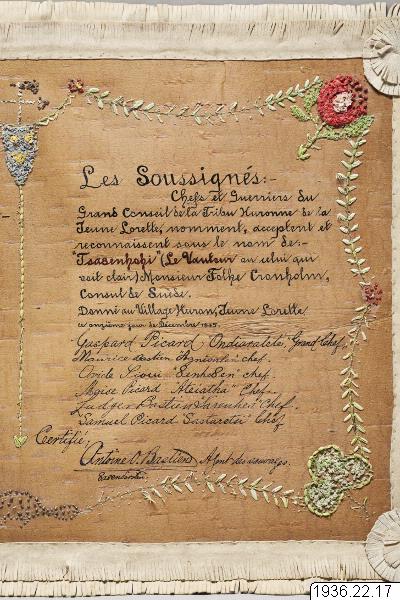 Les Soussignés:-
Chefs et Guerriers du
Grand Conseil de la Tribu Huronne de la
Jeune Lorette, nomment, acceptent et
reconnaissent sous le nom de:-
(Le Vautour ou celui qui
voit clair) Monsieur Folke Cronholm,
Consul de Suède.
Donné au Village Huron, Jeune Lorette
ce onzième jour de Décembre
Gaspard Picard Ondiaralété" Grand Chef,
Maurice Bastien chef.
Ovide Sioui chef.
Moïse Picard Chef.
Ludger Bastien Chef.
Samuel Picard Chef
Certifié,
Antoine O. Bastien, Agent des sauvages.
1936.22.17